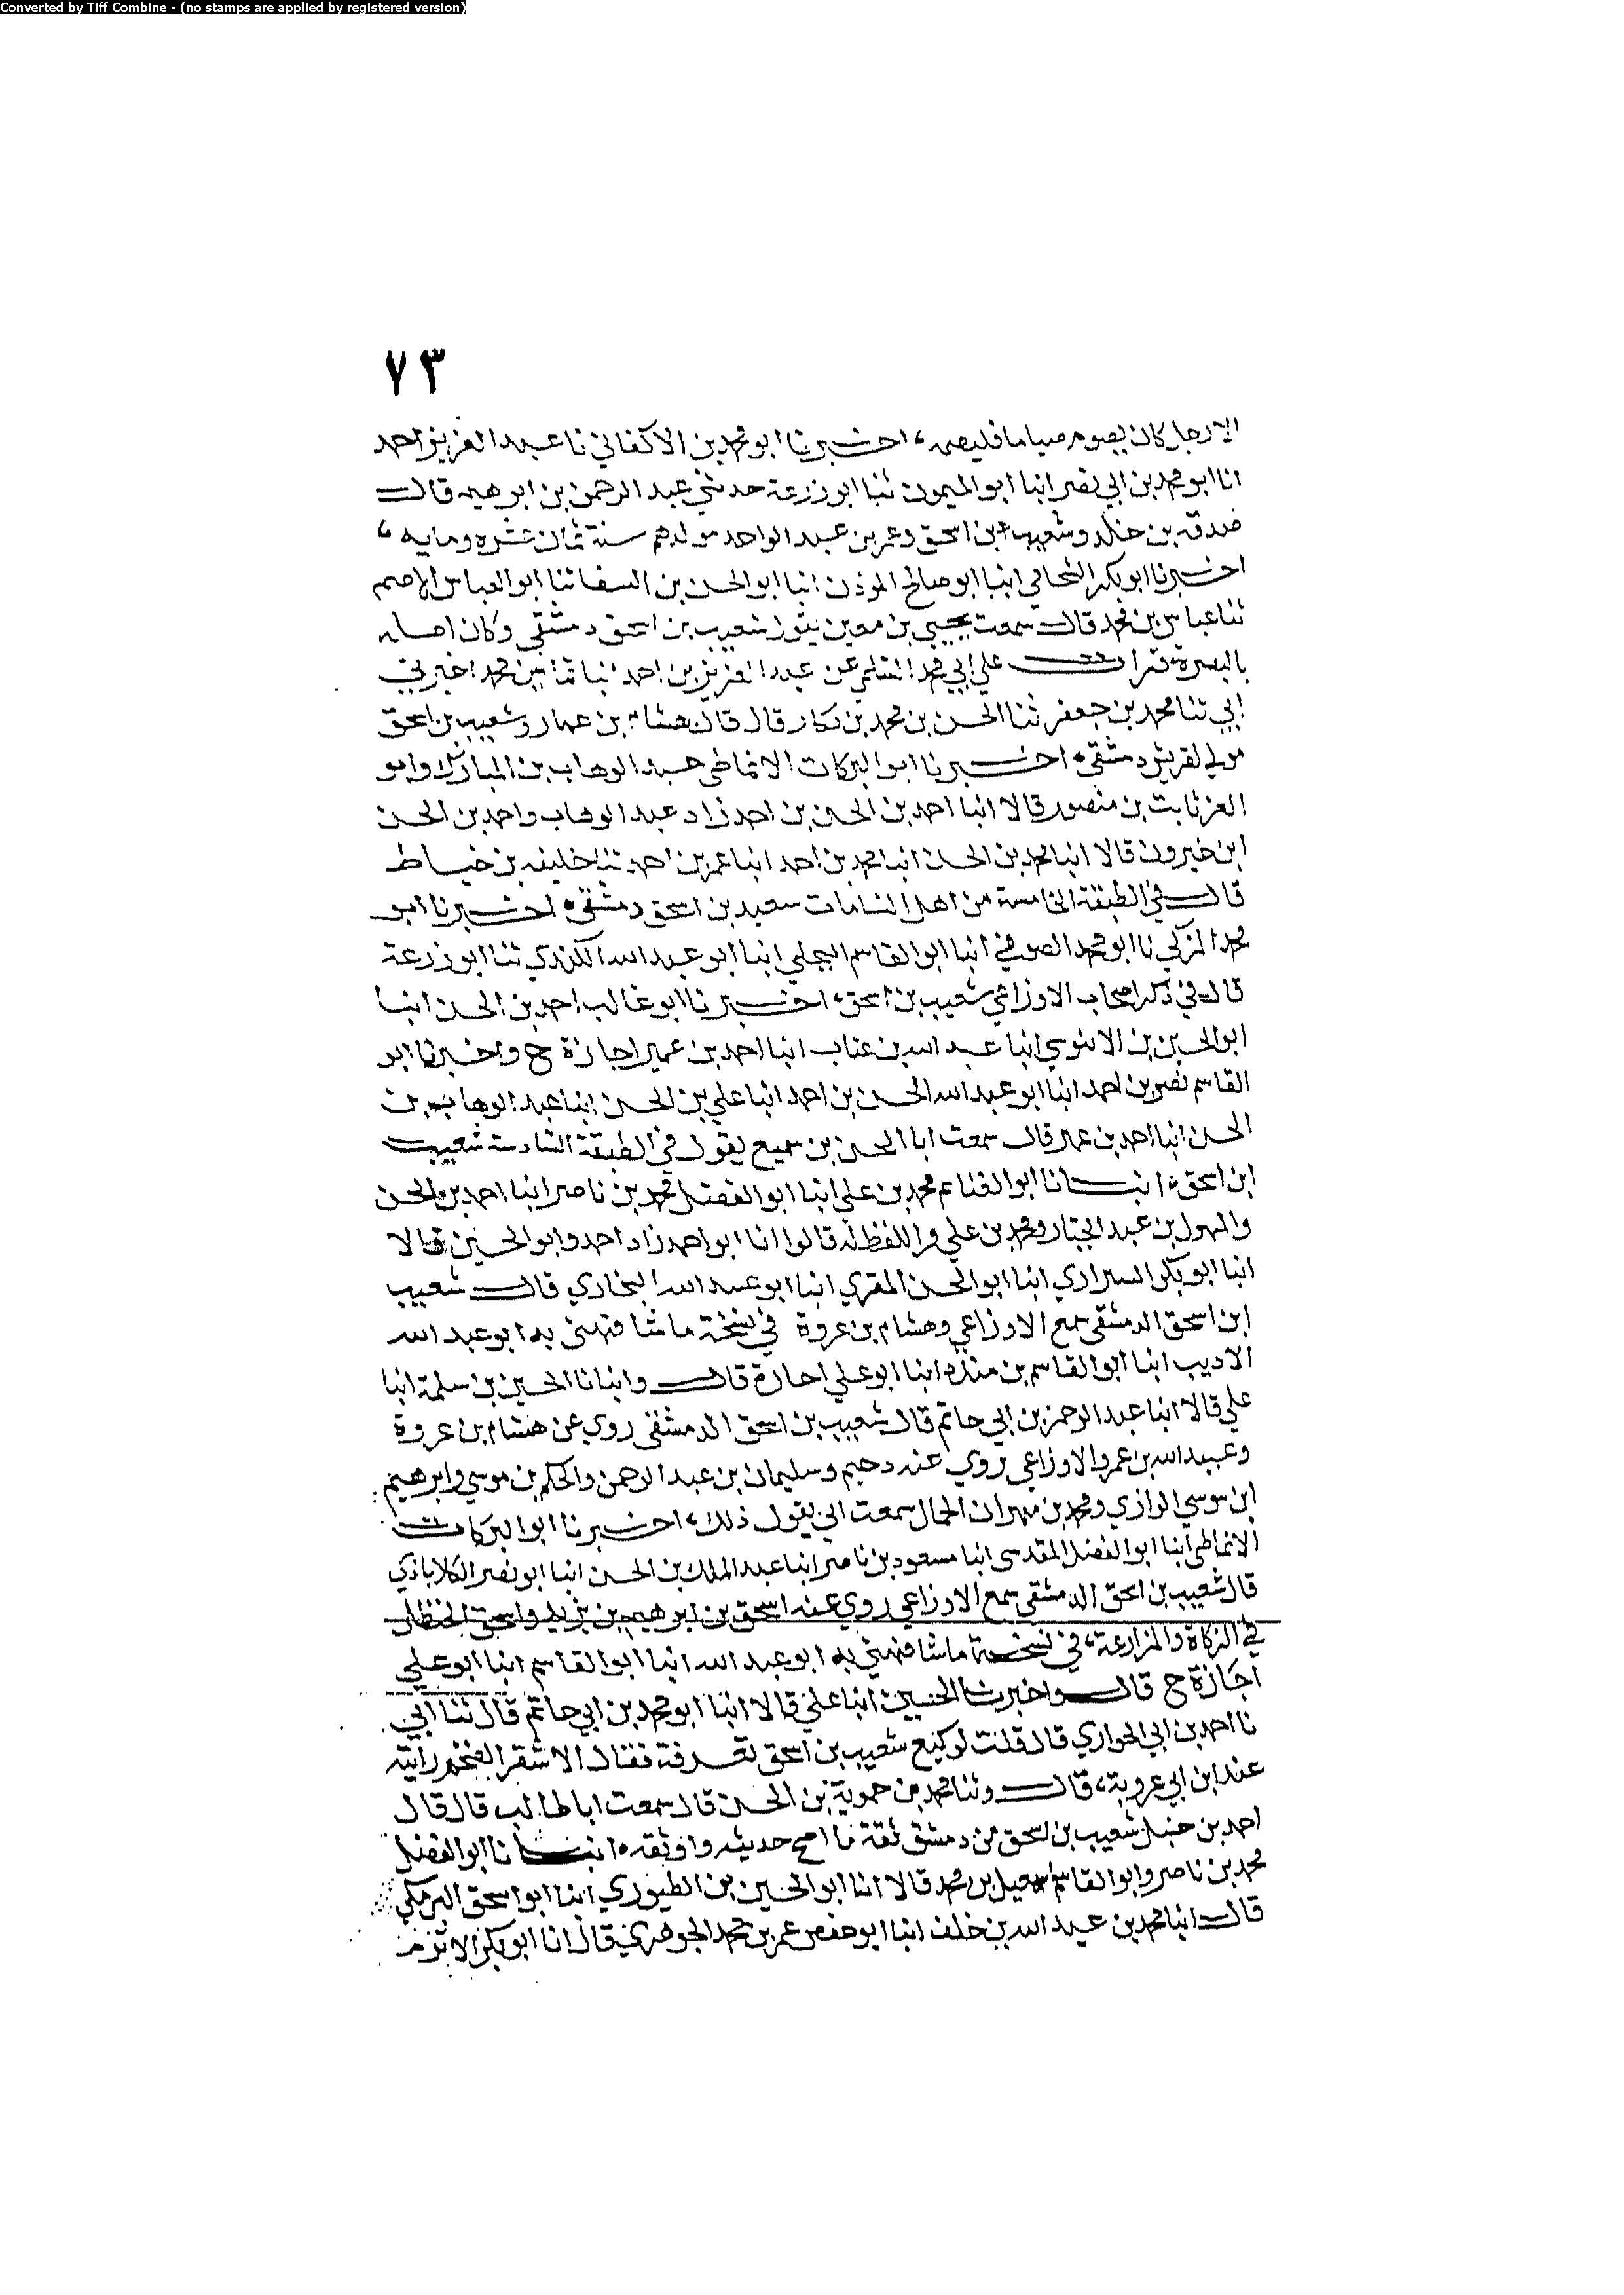 Converted by Tiff Combine - (no stamps are applied by registered version)
٧٣
الا رجل كان يصوم صياما فليصمه، اخبرنا ابو محمد بن الاكفاني نا عبد العزيز احمد
انا ابو محمد بن ابي نصر انبا ابو الميمون ثنا ابو زرعة حدثني عبد الرحمن بن ابرهيم قال
صدقه بن خالد وشعيب بن اسحق وعمر بن عبد الواحد مولدهم سنة ثمان عشره ومايه،
اخبرنا ابو بكر الشحامي انبا ابو صالح الموذن انبا ابو الحسن بن السقا ثنا ابو العباس الاصم
ثنا عباس بن محمد قال سمعت يحيي بن معين يقول شعيب بن اسحق دمشقي وكان اصله
بالبصرة، قرات علي ابي محمد السلمي عن عبد العزيز بن احمد انبا تمام بن محمد اخبرني
ابي ثنا محمد بن جعفر ثنا الحسن بن محمد بن بكار قال قال هشام بن عمار وشعيب بن اسحق
مولي لقريش دمشقي، اخبرنا ابو البركات الانماطي عبد الوهاب بن المبارك وابو
العز ثابت بن منصور قالا انبا احمد بن الحسن بن احمد زاد عبد الوهاب واحمد بن الحسن
ابن خيرون قالا انبا محمد بن الحسن انبا محمد بن احمد انبا عمر بن احمد ثنا خليفه بن خياط
قال في الطبقة الخامسة من اهل الشامات سعيد بن اسحق دمشقي، اخبرنا ابو
محمد المزكي نا ابو محمد الصوفي انبا ابو القاسم البجلي انبا ابو عبد الله الكندي ثنا ابو زرعة
قال في ذكر اصحاب الاوزاعي شعيب بن اسحق، اخبرنا ابو غالب احمد بن الحسن انبا
ابو الحسين بن الابنوسي انبا عبد الله بن عتاب انبا احمد بن عمير اجازة ح واخبرنا ابو
القاسم نصر بن احمد انبا ابو عبد الله الحسن بن احمد انبا علي بن الحسن انبا عبد الوهاب بن
الحسن انبا احمد بن عمير قال سمعت ابا الحسن بن سميع يقول في الطبقة السادسة شعيب
ابن اسحق، انبانا ابو الغنائم محمد بن علي انبا ابو الفضل محمد بن ناصر انبا احمد بن الحسن
والمبول بن عبد الجبار ومحمد بن علي واللفظ له قالوا انا ابو احمد زاد احمد وابو الحسين قالا
انبا ابو بكر السيرازي انبا ابو الحسن المقري انبا ابو عبد الله البخاري قال شعيب
ابن اسحق الدمشقي سمع الاوزاعي وهشام بن عروة في نسخة ما شافهني به ابو عبد الله
الاديب انبا ابو القاسم بن منده انبا ابو علي اجازة قال وانبانا الحسين بن سلمة انبا
علي قالا انبا عبد الرحمن بن ابي حاتم قال شعيب بن اسحق الدمشقي روي عن هشام بن عروة
وعبيد الله بن عمر والاوزاعي روي عنه دحيم وسليمان بن عبد الرحمن والحكم بن موسي وابرهيم
ابن موسي الرازي ومحمد بن مهران الجمال سمعت ابي يقول ذلك، اخبرنا ابو البركات
الانماطي انبا ابو الفضل المقدسي انبا مسعود بن ناصر انبا عبد الملك بن الحسن انبا ابو نصر الكلاباذي
قال شعيب بن اسحق الدمشقي سمع الاوزاعي روي عنه اسحق بن ابرهيم بن يزيد واسحق الحنظلي
في الزكاة والمزارعة، في نسخة ما شافهني به ابو عبد الله انبا ابو القاسم انبا ابو علي
اجازة ح قال واخبرنا الحسين انبا علي قالا انبا ابو محمد بن ابي حاتم قال ثنا ابي
نا احمد بن ابي الحواري قال قلت لوكيع شعيب بن اسحق تعرفه فقال الاشقر الضخم رايته
عند ابن ابي عروبة، قال وثنا محمد بن حموية بن الحسن قال سمعت ابا طالب قال قال
احمد بن حنبل شعيب بن اسحق من دمشق ثقة ما اصح حديثه واوثقه، انبانا ابو الفضل
محمد بن ناصر وابو القاسم اسمعيل بن محمد قالا انا ابو الحسين بن الطيوري انبا ابو اسحق البرمكي
قال انبا محمد بن عبد الله بن خلف انبا ابو حفص عمر بن محمد الجوهري قال انا ابو بكر الاثرم